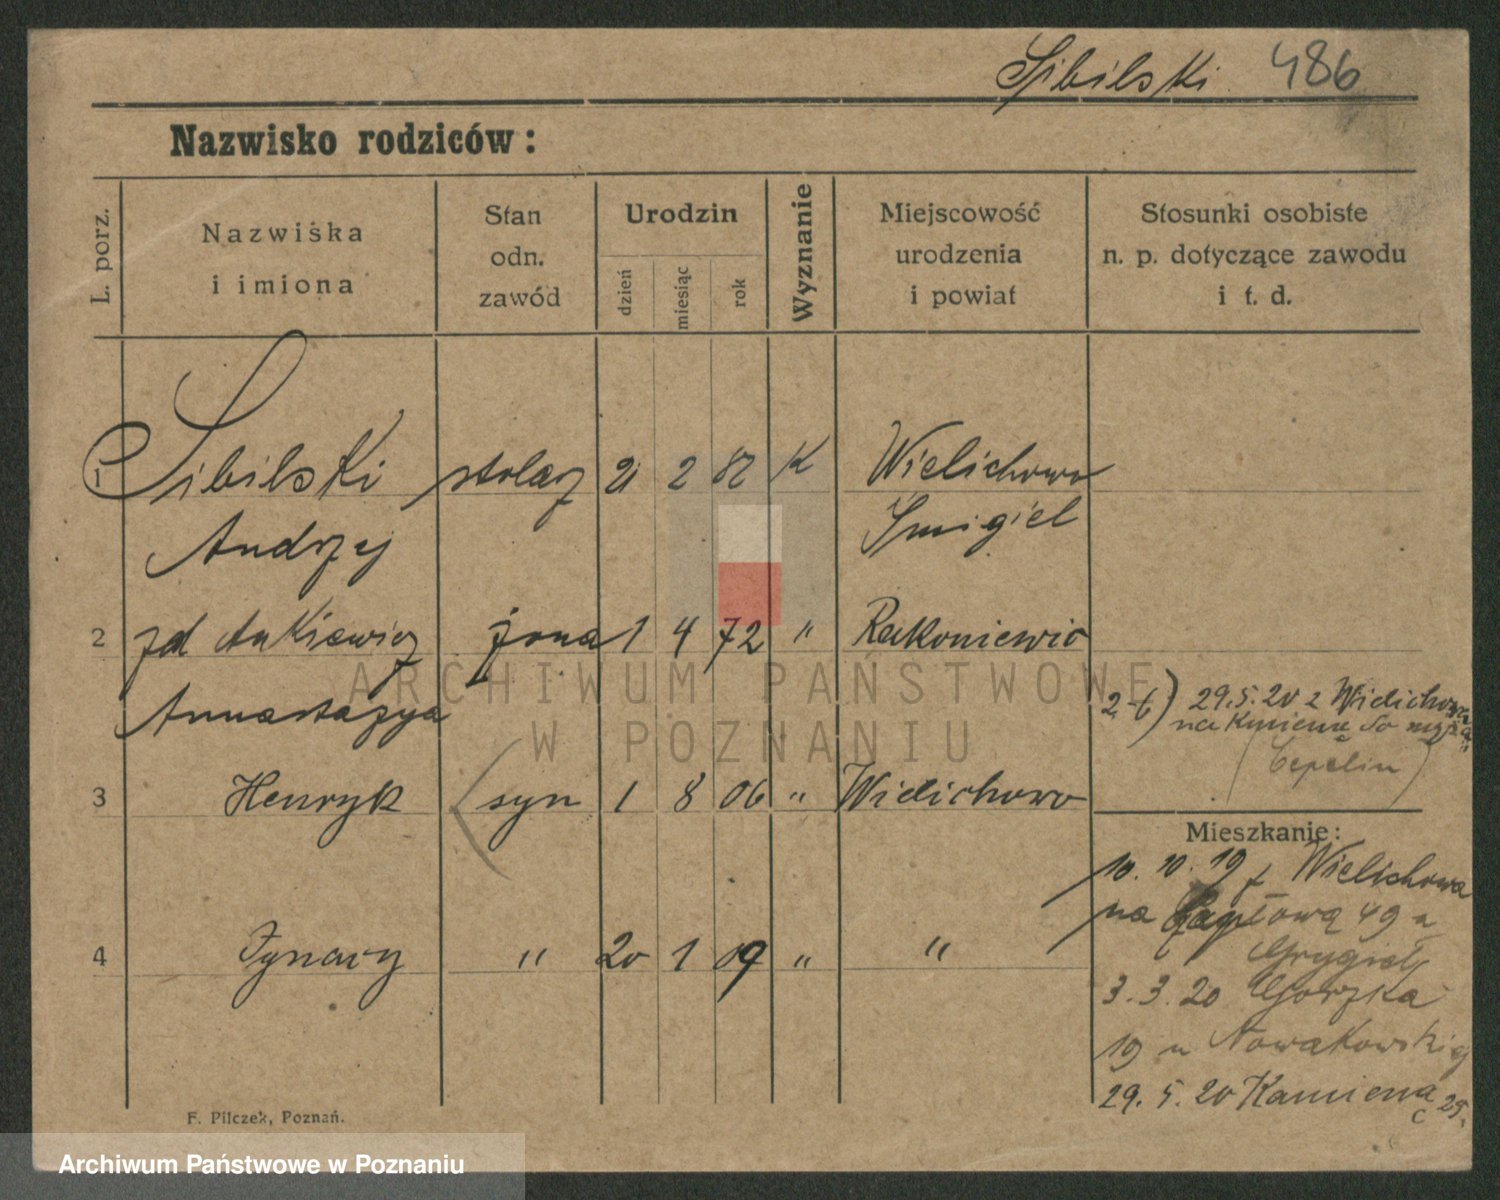 Sibilski 486
Nazwisko rodziców:
L. porz.
Nazwiska
i imiona
Stan
odn.
zawód
Urodzin
dzień
miesiąc
rok
Wyznanie
Miejscowość
urodzenia
i powiat
Stosunki osobiste
n. p. dotyczące zawodu
i t. d.
1 Sibilski stolarz 21 2 82 K Wielichowo
Andrzej Smigiel
2 zd Ankiewicz żona 1 4 72 " Rakoniewic
Annastazya
2-6) 29.5.20 z Wielichowa
na Kamienną do męża
3 Henryk syn 1 8 06 " Wielichowo
Mieszkanie:
10. 10. 19 z Wielichowa
na 49 u
4 Ignacy " 20 1 09 " "
3. 3. 20 Gorzka
19 u Nowakowskiej
29. 5. 20 Kamienna 25.
F. Pilczek, Poznań.
ARCHIWUM PAŃSTWOWE
W POZNANIU
Archiwum Państwowe w Poznaniu